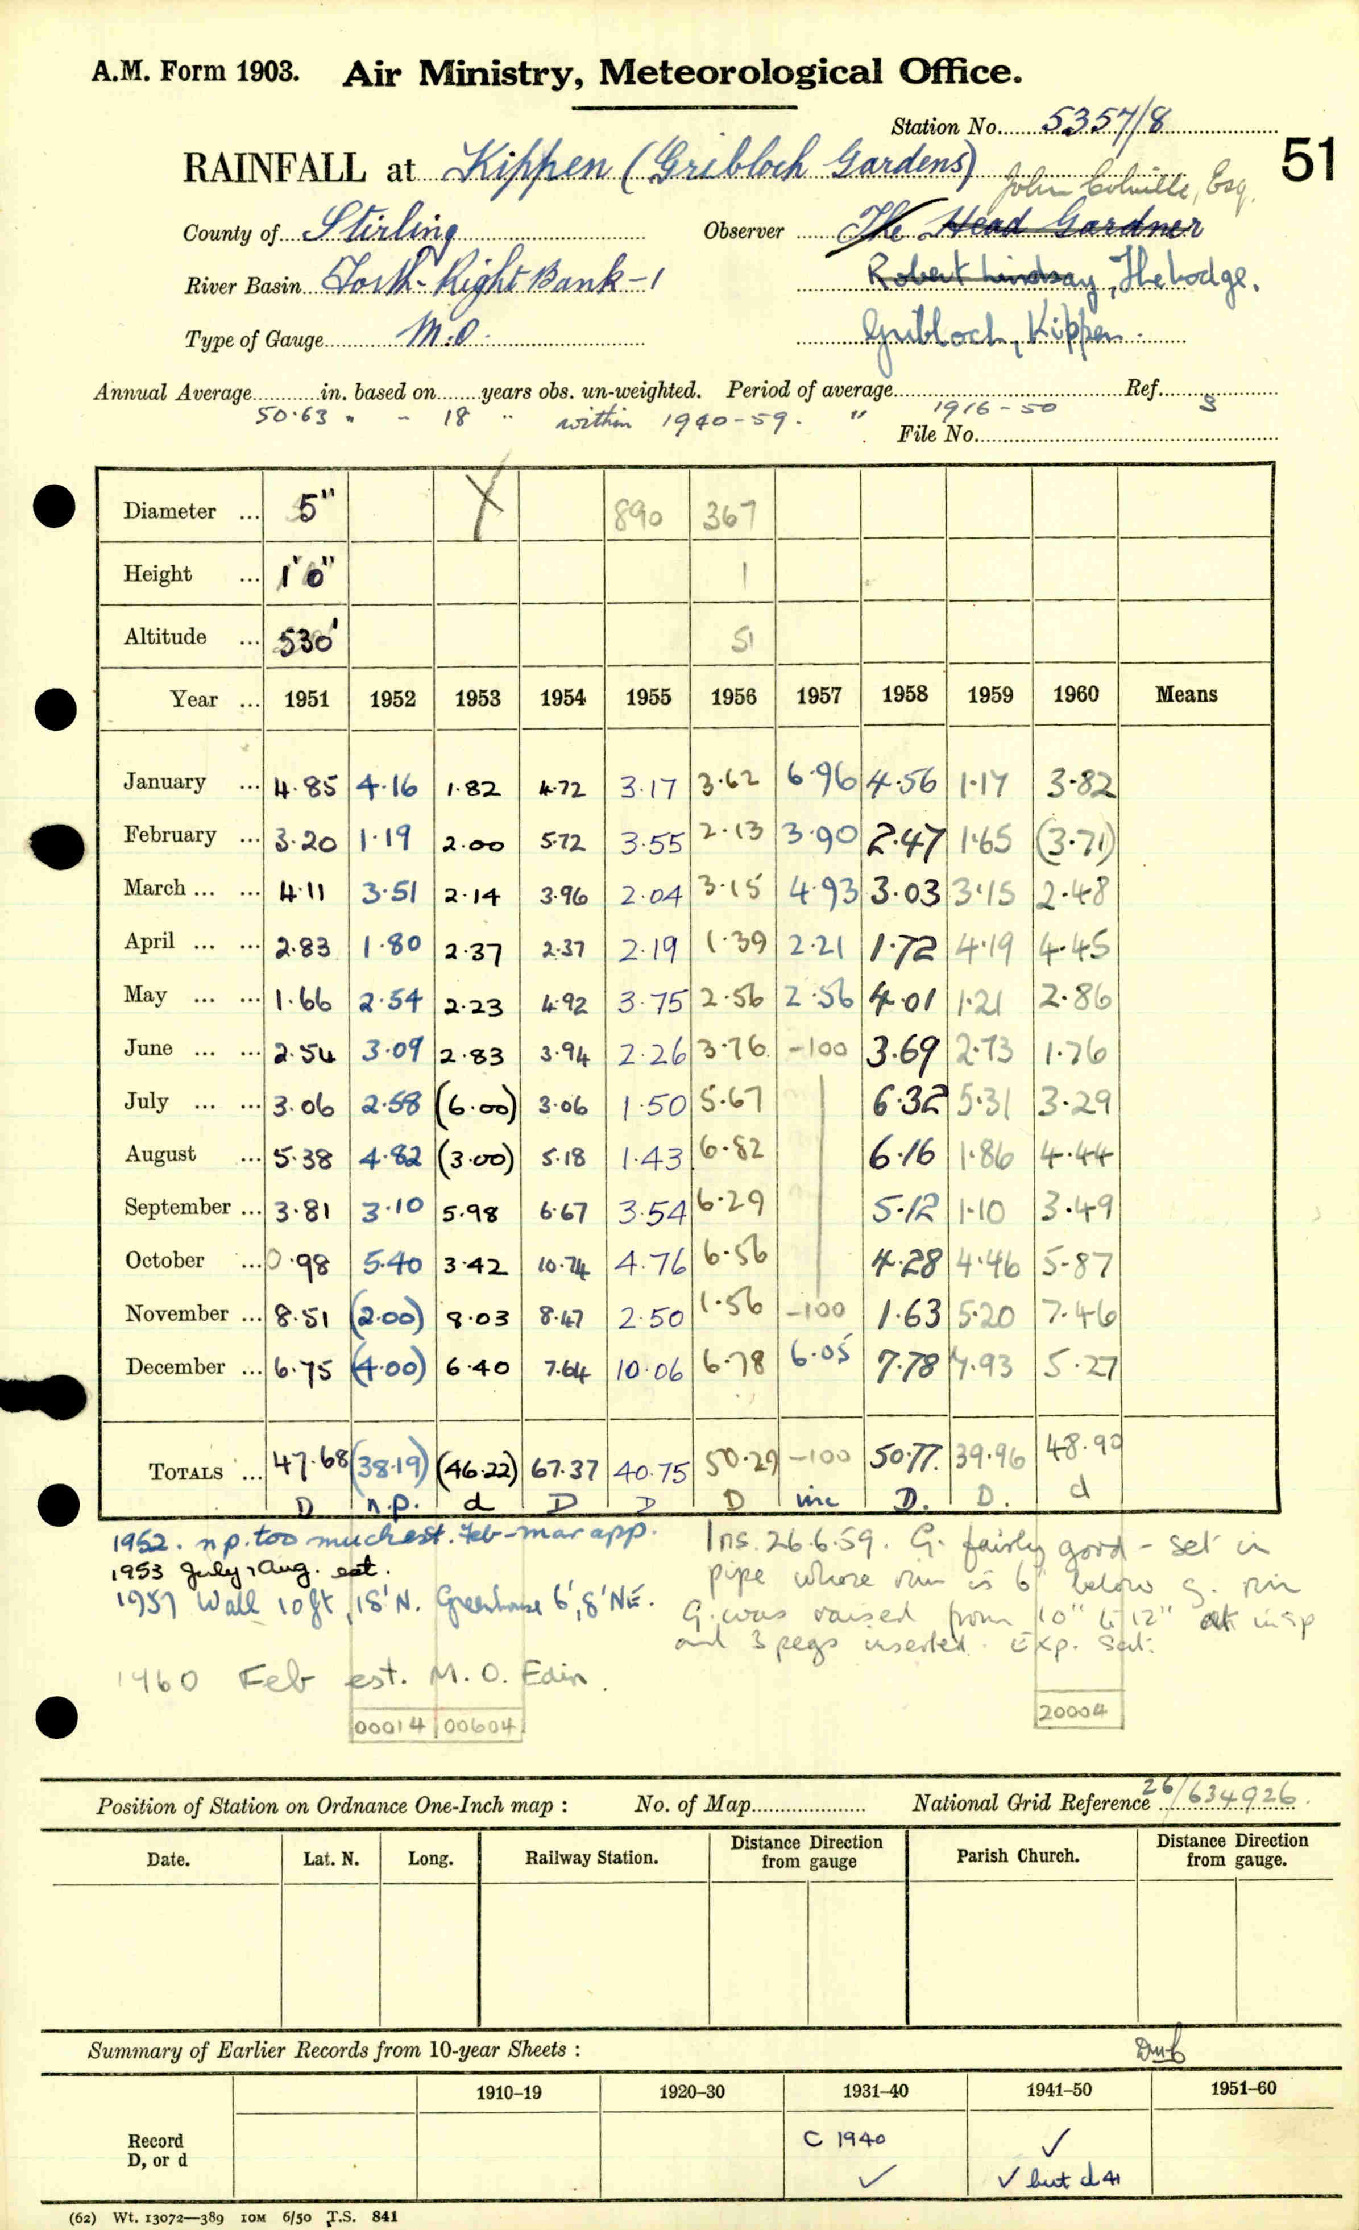 A.M. Form 1903. Air Ministry, Meteorological Office.
Station No. 5357/8
RAINFALL at Kippen (Gribloch Gardens) 51
John Colville, Esq.
County of Stirling Observer The Head Gardner
River Basin Forth-Right Bank-1 Robert Lindsay, The Lodge,
Type of Gauge M.O. Gribloch, Kippen.
Annual Average in. based on years obs. un-weighted. Period of average Ref.
50.63 " - 18 " within 1940-59. " 1916-50 S
File No.
Diameter ... 5" X 890 367
Height ... 1' 0" 1
Altitude ... 530' 51
Year ... 1951 1952 1953 1954 1955 1956 1957 1958 1959 1960 Means
January ... 4.85 4.16 1.82 4.72 3.17 3.62 6.96 4.56 1.17 3.82
February ... 3.20 1.19 2.00 5.72 3.55 2.13 3.90 2.47 1.65 (3.71)
March ... ... 4.11 3.51 2.14 3.96 2.04 3.15 4.93 3.03 3.15 2.48
April ... ... 2.83 1.80 2.37 2.37 2.19 1.39 2.21 1.72 4.19 4.45
May ... ... 1.66 2.54 2.23 4.92 3.75 2.56 2.56 4.01 1.21 2.86
June ... ... 2.54 3.09 2.83 3.94 2.26 3.76 -100 3.69 2.73 1.76
July ... ... 3.06 2.58 (6.00) 3.06 1.50 5.67 6.32 5.31 3.29
August ... 5.38 4.82 (3.00) 5.18 1.43 6.82 6.16 1.86 4.44
September ... 3.81 3.10 5.98 6.67 3.54 6.29 5.12 1.10 3.49
October ... 0.98 5.40 3.42 10.74 4.76 6.56 4.28 4.46 5.87
November ... 8.51 (2.00) 8.03 8.47 2.50 1.56 -100 1.63 5.20 7.46
December ... 6.75 (4.00) 6.40 7.64 10.06 6.78 6.05 7.78 7.93 5.27
TOTALS ... 47.68 (38.19) (46.22) 67.37 40.75 50.29 -100 50.77 39.96 48.90
D n.p. d D D D inc D. D. d
1952. n p. too much est. Feb-mar app.
1953 July, Aug. est.
1957 Wall 10ft, 18'N. Greenhouse 6', 8'NE.
1960 Feb est. M. O. Edin.
Ins. 26.6.59. G. fairly good - set in
pipe whose rim is 6" below g. rim
G. was raised from 10" to 12" at insp
and 3 pegs inserted. Exp. Sat.
00014 00604 20004
Position of Station on Ordnance One-Inch map : No. of Map National Grid Reference 26/634926
Date. Lat. N. Long. Railway Station. Distance Direction from gauge Parish Church. Distance Direction from gauge.
Summary of Earlier Records from 10-year Sheets :
1910-19 1920-30 1931-40 1941-50 1951-60
Record C 1940 ✓
D, or d ✓ ✓ but d 41
(62) Wt. 13072—389 10M 6/50 T.S. 841